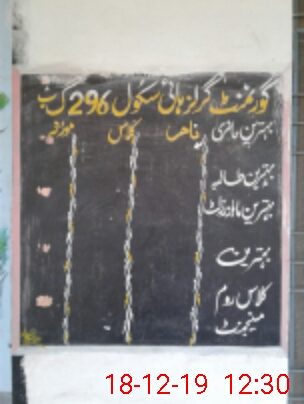 گورنمنٹ گرلز ہائی سکول 296 گ ب
بہترین حاضری کلاس مورخہ
بہترین طالبہ
بہترین
بہترین
کلاس روم
مینجمنٹ
18-12-19 12:30